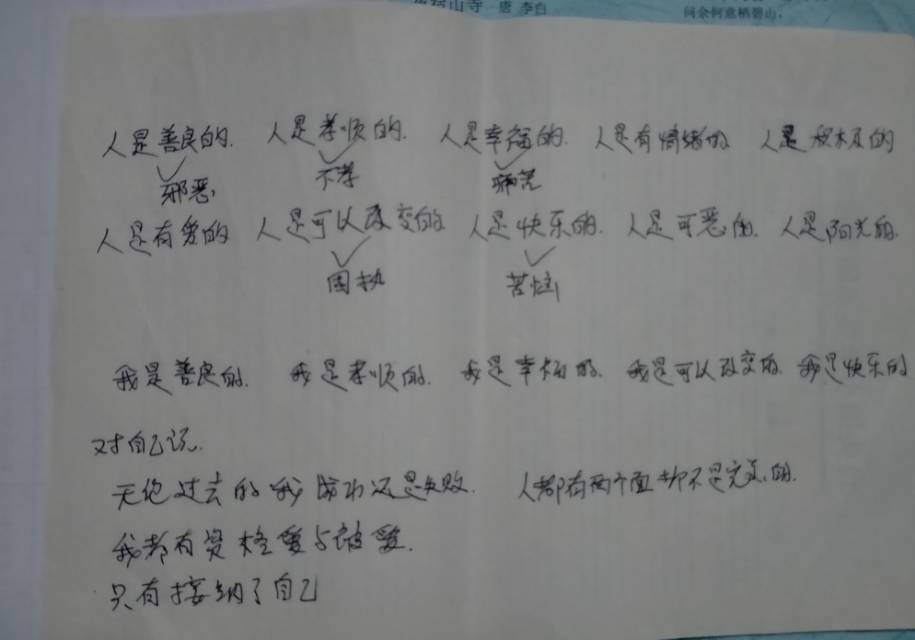 山寺 唐 李白
问余何意栖碧山,
人是善良的. 人是孝顺的. 人是幸福的. 人是有情绪的 人是积极的
邪恶, 不孝 痛苦
人是有爱的 人是可以改变的 人是快乐的. 人是可恶的. 人是阳光的.
固执 苦恼
我是善良的. 我是孝顺的. 我是幸福的. 我是可以改变的. 我是快乐的
对自己说.
无论过去的我成功还是失败. 人都有两个面都不是完美的.
我都有资格爱与被爱.
只有接纳了自己